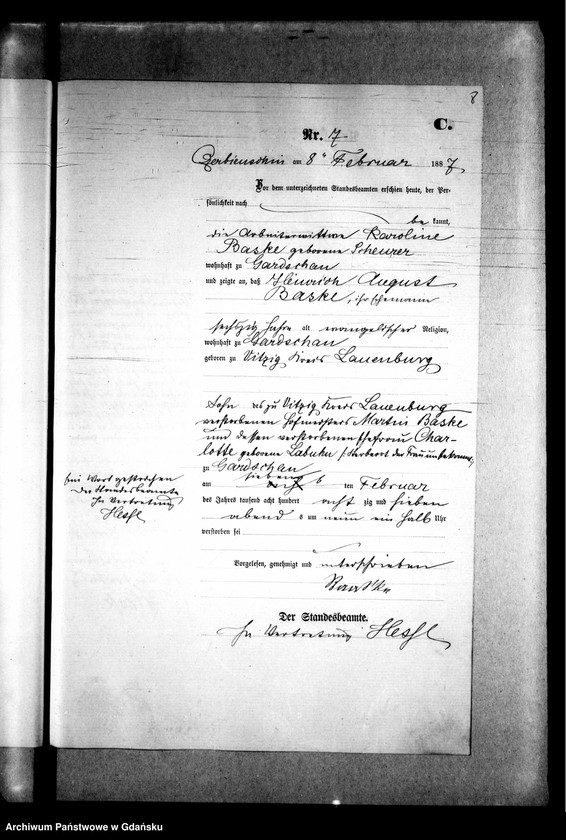 8
C.
Nr. 7
am 8ten Februar 1887
Vor dem unterzeichneten Standesbeamten erschien heute, der Per-
sönlichkeit nach
be kannt,
die Arbeiterwittwe Karoline
Baske geborene Scheurer
wohnhaft zu Gardschau
und zeigte an, daß Heinrich August
Baske, ihr Ehemann
sechszig Jahre alt evangelischer Religion,
wohnhaft zu Gardschau
geboren zu Vitzig Kreis Lauenburg
Sohn des zu Vitzig Kreis Lauenburg
verstorbenen Hofmeisters Martin Baske
und dessen verstorbenen Ehefrau Char-
lotte geborene Labuhn
zu Gardschau
am siebenten Februar
des Jahres tausend acht hundert acht zig und sieben
abends um neun ein halb Uhr
verstorben sei
Vorgelesen, genehmigt und unterschrieben
Baaske
Der Standesbeamte.
In Vertretung
Ein Wort gestrichen
Der Standesbeamte
In Vertretung
Archiwum Państwowe w Gdańsku